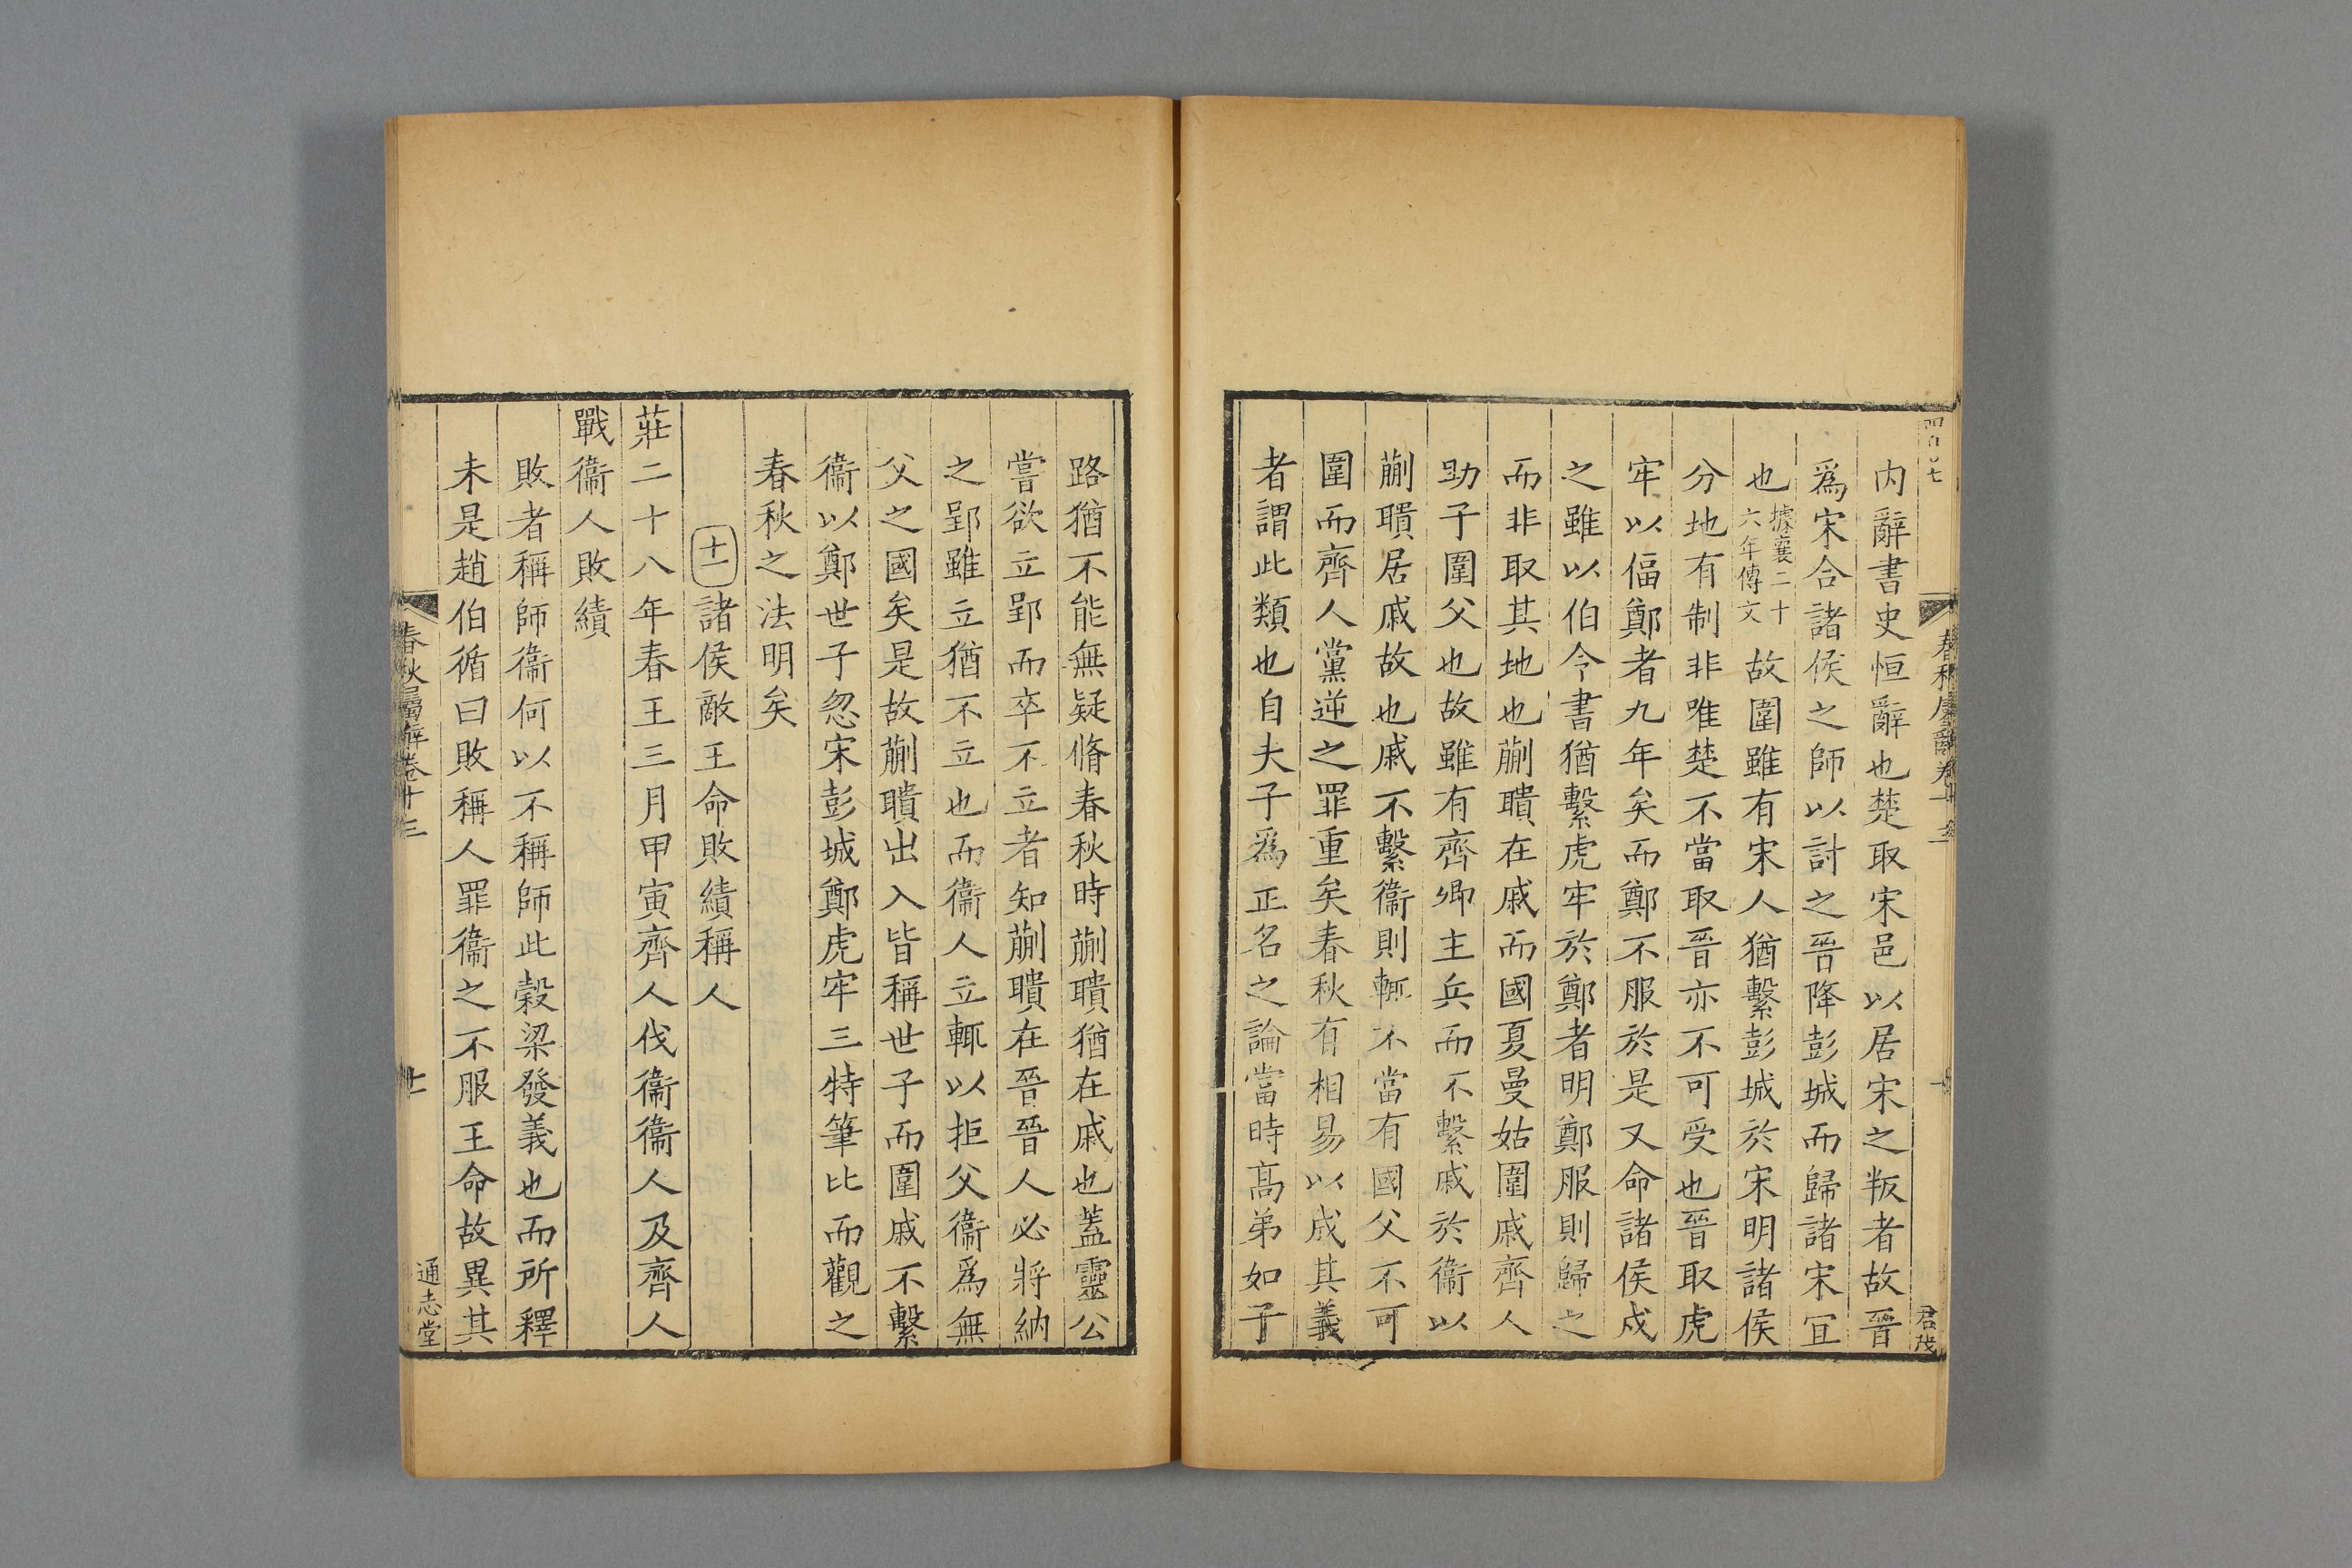 内辭書史恒辭也楚取宋邑以居宋之叛者故晉
爲宋合諸侯之師以討之晉降彭城而歸諸宋宜
也據襄二十六年傳文故圍雖有宋人猶繫彭城於宋明諸侯
分地有制非唯楚不當取晉亦不可受也晉取虎
牢以偪鄭者九年矣而鄭不服於是又命諸侯戍
之雖以伯令書猶繫虎牢於鄭者明鄭服則歸之
而非取其地也蒯聵在戚而國夏曼姑圍戚齊人
助子圍父也故雖有齊卿主兵而不繫戚於衞以
蒯聵居戚故也戚不繫衞則輒不當有國父不可
圍而齊人黨逆之罪重矣春秋有相易以成其義
者謂此類也自夫子爲正名之論當時高弟如子
春秋屬辭卷十三
君茂
路猶不能無疑脩春秋時蒯聵猶在戚也蓋靈公
嘗欲立郢而卒不立者知蒯聵在晉晉人必將納
之郢雖立猶不立也而衞人立輒以拒父衞爲無
父之國矣是故蒯聵出入皆稱世子而圍戚不繫
衞以鄭世子忽宋彭城鄭虎牢三特筆比而觀之
春秋之法明矣
十一諸侯敵王命敗績稱人
莊二十八年春王三月甲寅齊人伐衞衞人及齊人
戰衞人敗績
敗者稱師衞何以不稱師此穀梁發義也而所釋
未是趙伯循曰敗稱人罪衞之不服王命故異其
春秋屬辭卷十三
十一
通志堂